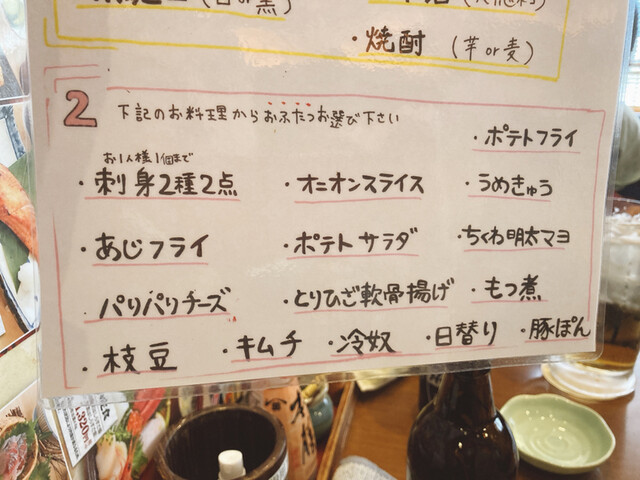 ・焼酎 (芋or麦)
2 下記のお料理からおふたつお選び下さい
・ポテトフライ
お1人様1個まで
・刺身2種2点 ・オニオンスライス ・うめきゅう
・あじフライ ・ポテトサラダ ・ちくわ明太マヨ
・パリパリチーズ ・とりひざ軟骨揚げ ・もつ煮
・枝豆 ・キムチ ・冷奴 ・日替り ・豚ぽん